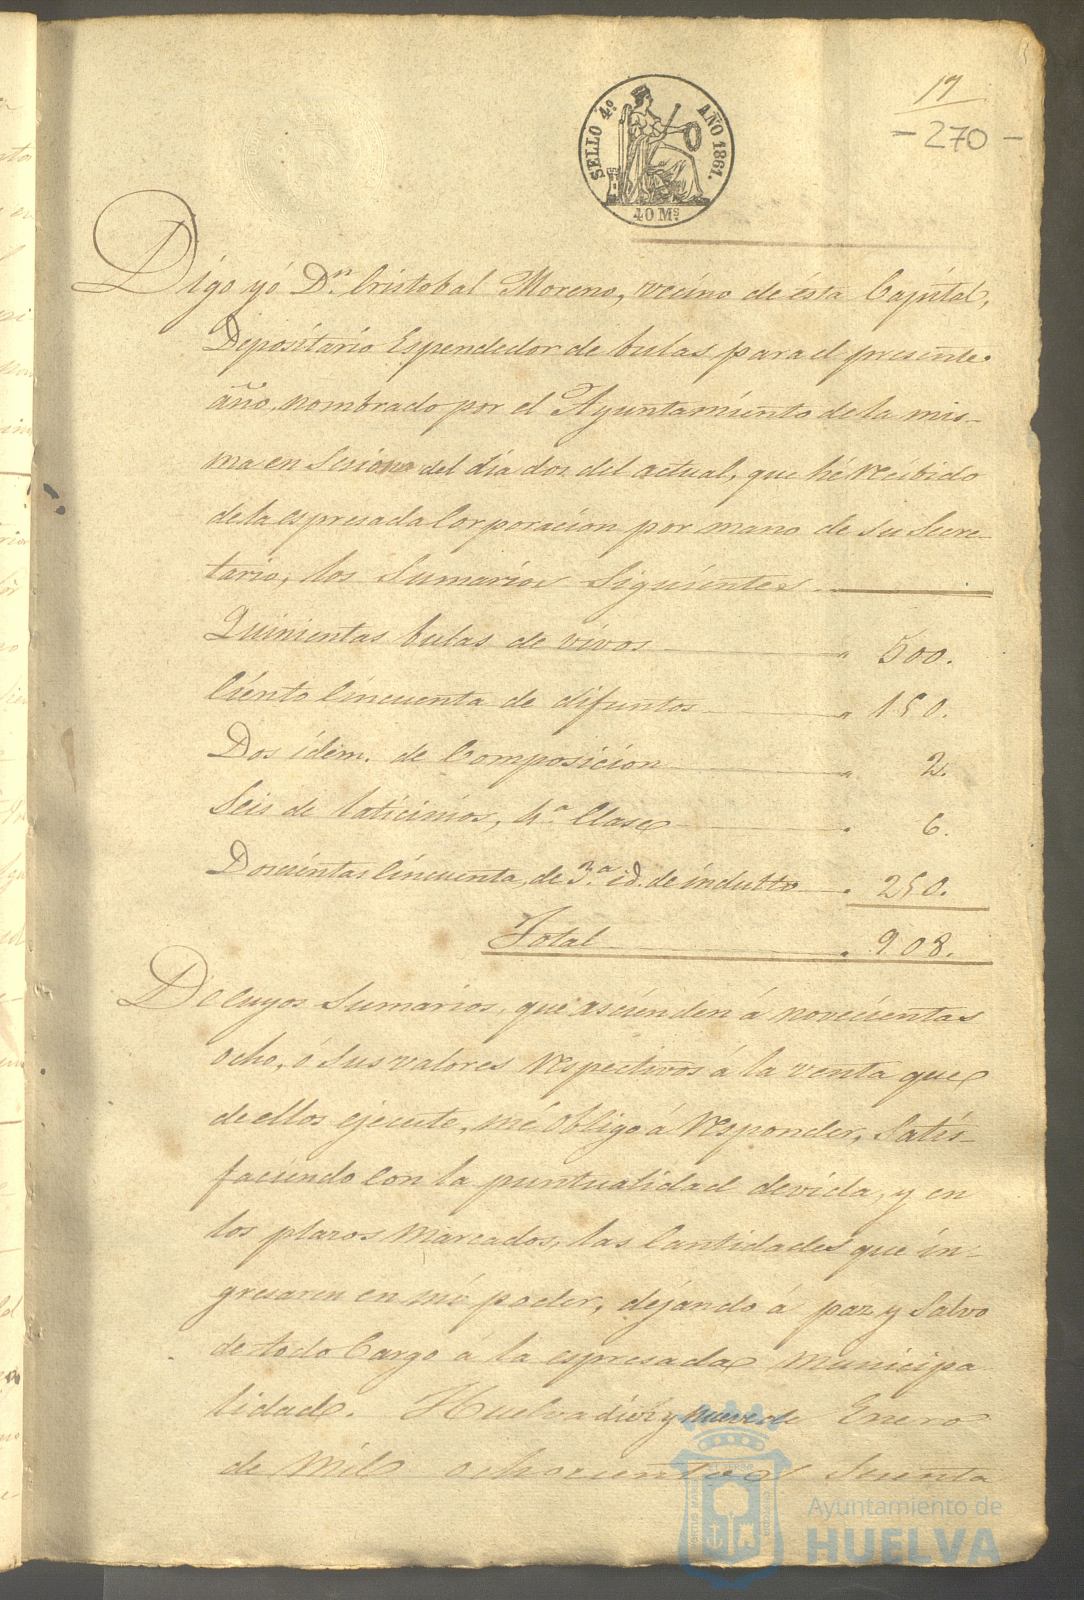 17
- 270 -
SELLO 4º AÑO 1861.
40 Ms.
Digo yó Dn. Cristobal Moreno, vecino de ésta Capital,
Depositário Espendedor de bulas para el presente
año, nombrado por el Ayuntamiento de la mis-
ma en Sesion del día dos del actual, que hé recibido
de la espresada Corporacion por mano de su Secre-
tario, los Sumarios Siguientes
Quinientas bulas de vivos " 500.
Ciento Cincuenta de difuntos " 150.
Dos idem. de Composicion " 2.
Seis de laticinios, 4.ª Clase " 6.
Doscientas Cincuenta, de 3.ª id. de indulto " 250.
Total " 908.
De cuyos Sumarios, que ascienden á novecientas
ocho, ó sus valores respectivos á la venta que
de ellos ejecute, mé obligo á responder, Satis-
faciendo con la puntualidad devida, y en
los plazos marcados, las Cantidades que in-
gresaren en mi poder, dejando á paz y Salvo
de todo Cargo á la espresada Municipa
lidad. Huelva diez y nueve de Enero
de Mil ochocientos Sesenta
Ayuntamiento de
HUELVA